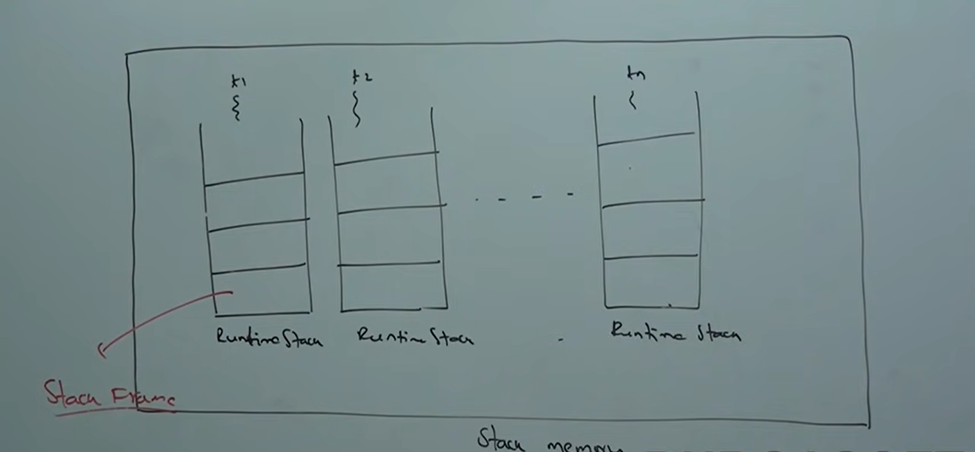 t1 t2 tn
Runtime Stack Runtime Stack Runtime Stack
Stack Frame
Stack memory